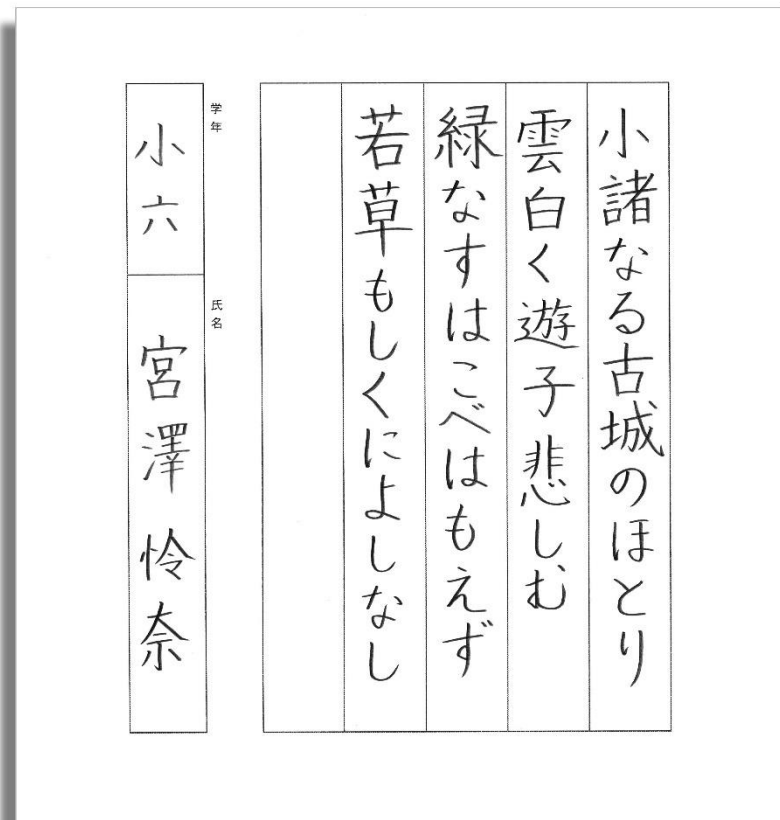 小諸なる古城のほとり
雲白く遊子悲しむ
緑なすはこべはもえず
若草もしくによしなし
学年
小六
氏名
宮澤怜奈